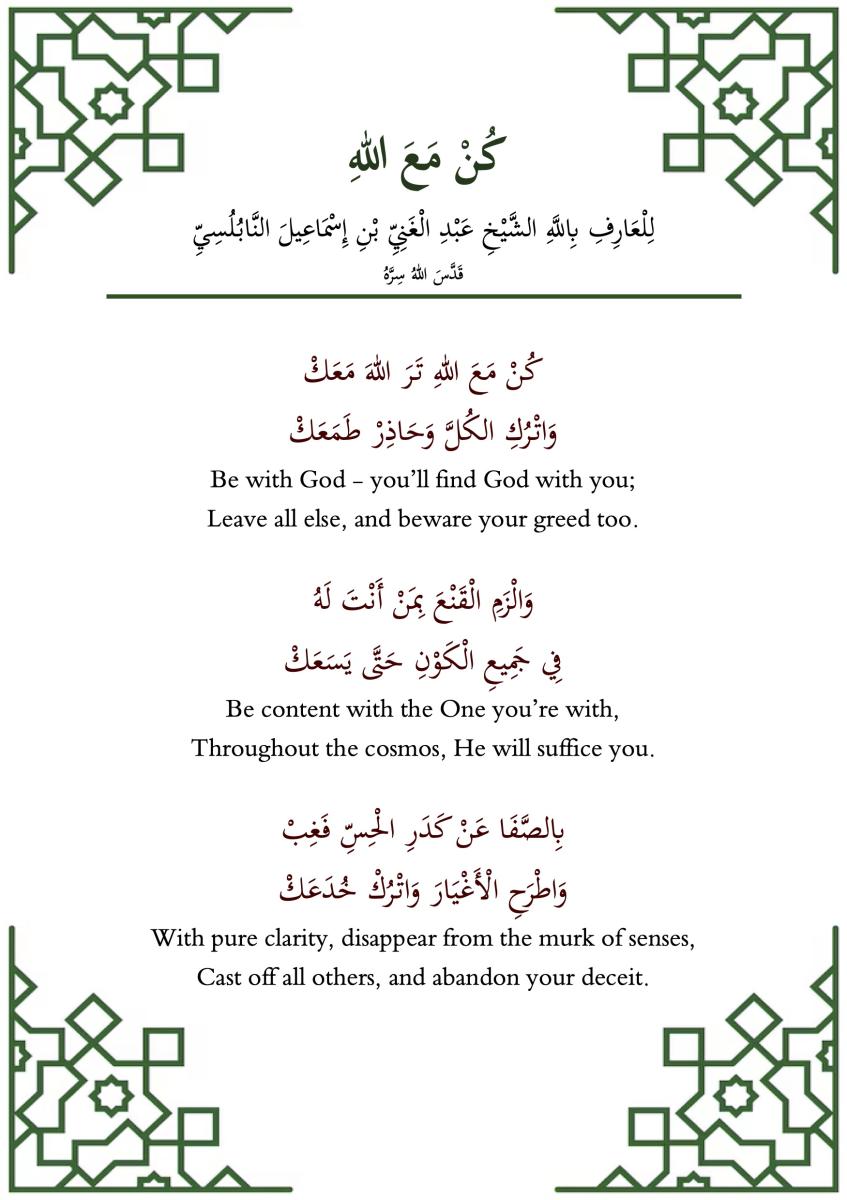 كُنْ مَعَ اللهِ
لِلْعَارِفِ بِاللَّهِ الشَّيْخِ عَبْدِ الْغَنِيِّ بْنِ إِسْمَاعِيلَ النَّابُلُسِيِّ
قَدَّسَ اللهُ سِرَّهُ
كُنْ مَعَ اللهِ تَرَ اللهَ مَعَكْ
وَاتْرُكِ الكُلَّ وَحَاذِرْ طَمَعَكْ
Be with God – you’ll find God with you;
Leave all else, and beware your greed too.
وَالْزَمِ الْقَنْعَ بِمَنْ أَنْتَ لَهُ
فِي جَمِيعِ الْكَوْنِ حَتَّى يَسَعَكْ
Be content with the One you’re with,
Throughout the cosmos, He will suffice you.
بِالصَّفَا عَنْ كَدَرِ الْحِسِّ فَغِبْ
وَاطْرَحِ الْأَغْيَارَ وَاتْرُكْ خُدَعَكْ
With pure clarity, disappear from the murk of senses,
Cast off all others, and abandon your deceit.